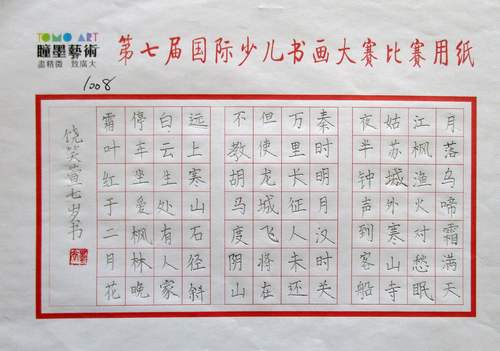 TOMO ART
瞳墨藝術
盡精微 致廣大
第七届国际少儿书画大赛比赛用纸
1008
月落乌啼霜满天
江枫渔火对愁眠
姑苏城外寒山寺
夜半钟声到客船
秦时明月汉时关
万里长征人未还
但使龙城飞将在
不教胡马度阴山
远上寒山石径斜
白云生处有人家
停车坐爱枫林晚
霜叶红于二月花
饶笑宣七岁书